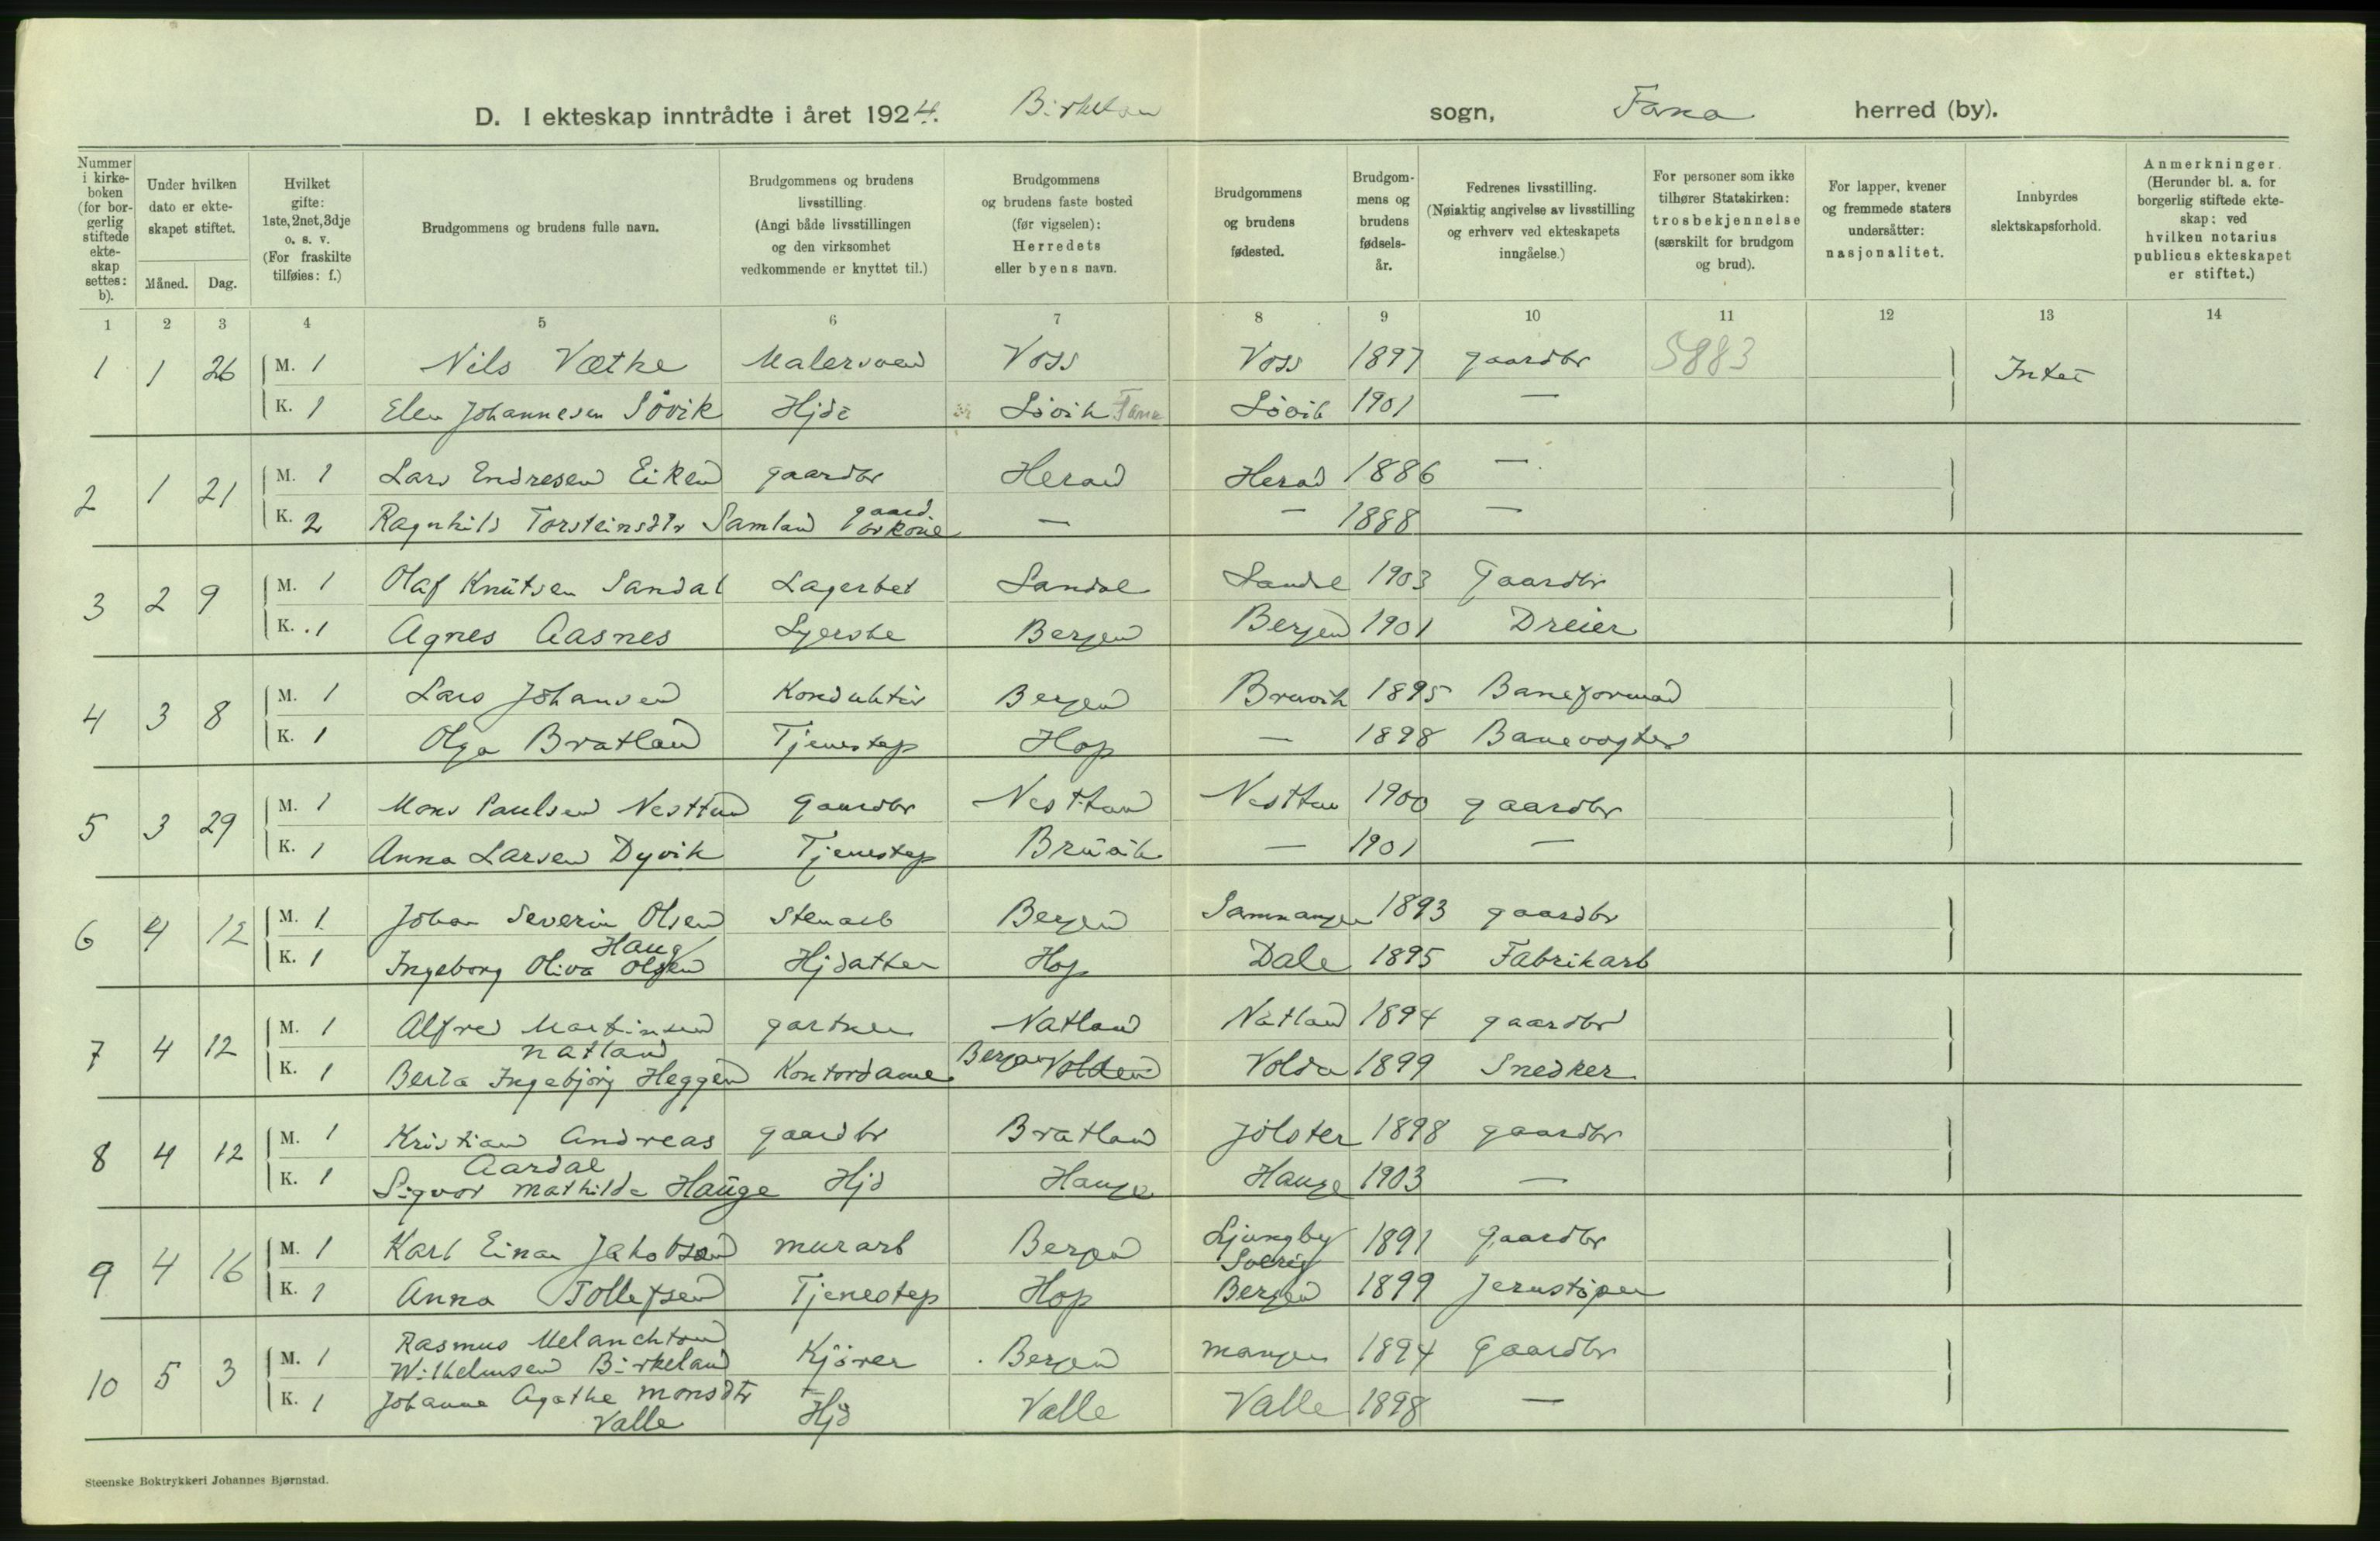 D. I ekteskap inntrådte i året 1924. Birkeland sogn, Fana herred (by).
Nummer i kirke-boken (for bor-gerlig stiftede ekte-skap settes: b).
Under hvilken dato er ekte-skapet stiftet.
Måned. Dag.
Hvilket gifte: 1ste, 2net, 3dje o. s. v. (For fraskilte tilføies: f.)
Brudgommens og brudens fulle navn.
Brudgommens og brudens livsstilling. (Angi både livsstillingen og den virksomhet vedkommende er knyttet til.)
Brudgommens og brudens faste bosted (før vigselen): Herredets eller byens navn.
Brudgommens og brudens fødested.
Brudgom-mens og brudens fødsels-år.
Fedrenes livsstilling. (Nøiaktig angivelse av livsstilling og erhverv ved ekteskapets inngåelse.)
For personer som ikke tilhører Statskirken: trosbekjennelse (særskilt for brudgom og brud).
For lapper, kvener og fremmede staters undersåtter: nasjonalitet.
Innbyrdes slektskapsforhold.
Anmerkninger. (Herunder bl. a. for borgerlig stiftede ekte-skap: ved hvilken notarius publicus ekteskapet er stiftet.)
1 2 3 4 5 6 7 8 9 10 11 12 13 14
1 1 26 M. 1 Nils Væthe Malersvend Voss Voss 1897 gaardbr 5883 Intet
K. 1 Elen Johannesen Søvik Hjd Søvik Fana Søvik 1901 —
2 1 21 M. 1 Lars Endresen Eiken gaardbr Herad Herad 1886 —
K. 2 Ragnhild Torsteinsdtr Samland gaardbrkone — — 1888 —
3 2 9 M. 1 Olaf Knutsen Sandal Lagerbet Sandal Sandal 1903 Gaardbr
K. 1 Agnes Aasnes Bergen Bergen 1901 Dreier
4 3 8 M. 1 Lars Johansen Konduktør Bergen Bruvik 1895 Baneformand
K. 1 Olga Bratland Tjenestep Hop — 1898 Banevogter
5 3 29 M. 1 Mons Paulsen Nesttun Gaardbr Nesttun Nesttun 1900 gaardbr
K. 1 Anna Larsen Dyvik Tjenestep Bruvik — 1901 —
6 4 12 M. 1 Johan Severin Olsen Stenarb Bergen Samnanger 1893 gaardbr
Haug
K. 1 Ingeborg Oliva Olsen Hjdatter Hop Dale 1895 Fabrikarb
7 4 12 M. 1 Alfred Martinsen gartner Natland Natland 1894 gaardbr
Natland
K. 1 Berta Ingebjørg Heggen Kontordame Bergen Volden Volda 1899 Snedker
8 4 12 M. 1 Kristian Andreas gaardbr Bratland Jølster 1898 gaardbr
Aardal
K. 1 Sigvor Mathilde Hauge Hjd Hauge Hauge 1903 —
9 4 16 M. 1 Karl Einar Jakobsen murarb Bergen Ljungby Sverig 1891 gaardbr
K. 1 Anna Tollefsen Tjenestep Hop Bergen 1899 Jernstøper
10 5 3 M. 1 Rasmus Melanchton
Wilhelmsen Birkeland Kjører Bergen Manger 1894 Gaardbr
K. 1 Johanne Agathe Monsdtr
Valle Hjd Valle Valle 1898 —
Steenske Boktrykkeri Johannes Bjørnstad.